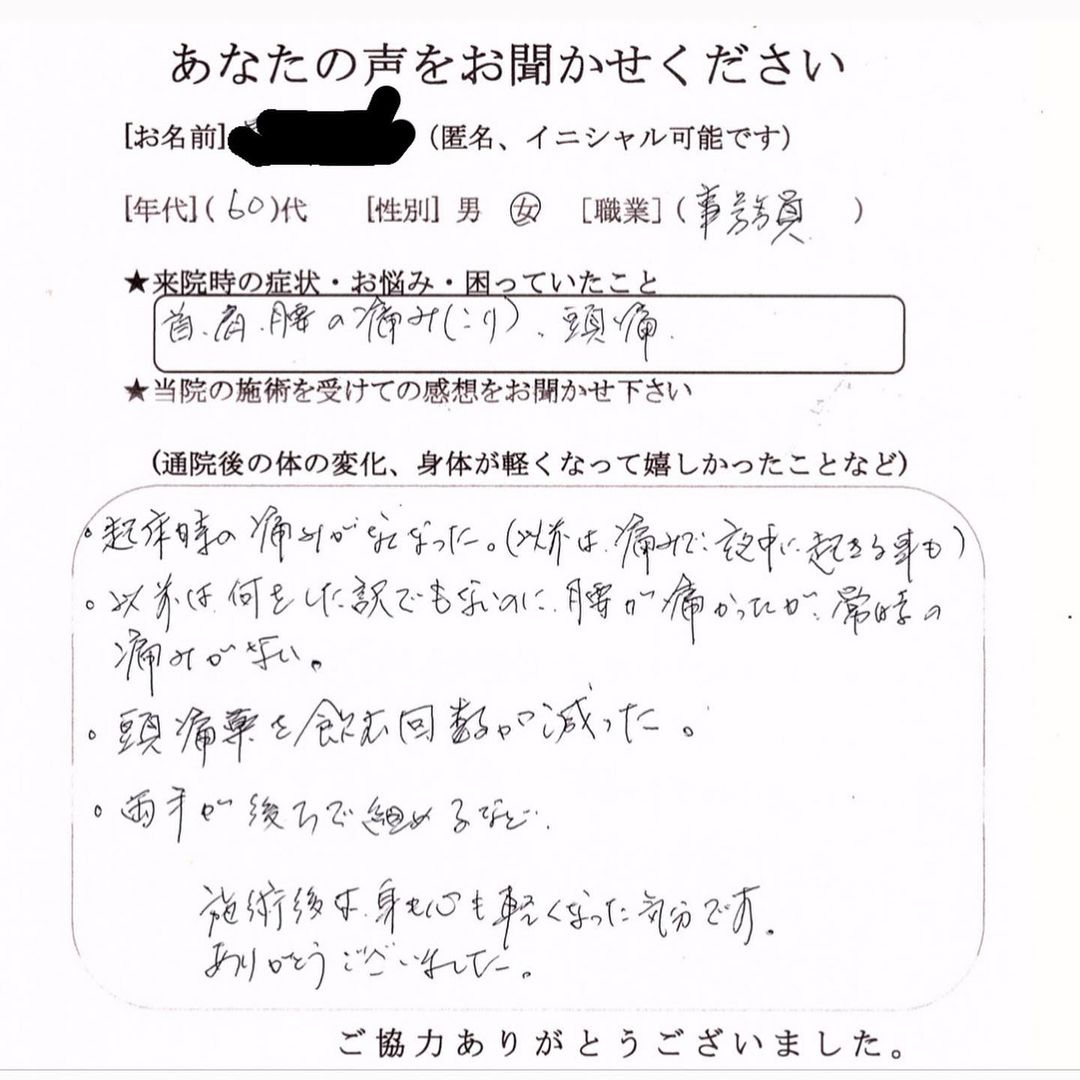 あなたの声をお聞かせください
[お名前] (匿名、イニシャル可能です)
[年代](60)代 [性別] 男 女 [職業](事務員)
★来院時の症状・お悩み・困っていたこと
首、肩、腰の痛み(こり)、頭痛.
★当院の施術を受けての感想をお聞かせ下さい
(通院後の体の変化、身体が軽くなって嬉しかったことなど)
・起床時の痛みがなくなった。(以前は、痛みで夜中に起きる事も)
・以前は何をした訳でもないのに、腰が痛かったが、常時の
痛みがない。
・頭痛薬を飲む回数が減った。
・両手が後ろで組めるなど.
施術後は、身も心も軽くなった気分です。
ありがとうございました。
ご協力ありがとうございました。